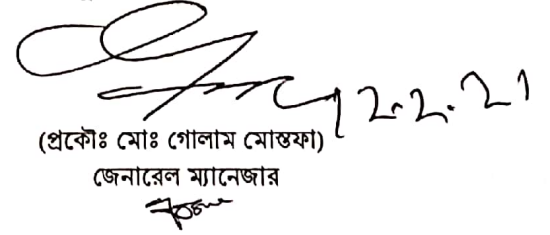 2.2.21
(প্রকৌঃ মোঃ গোলাম মোস্তফা)
জেনারেল ম্যানেজার